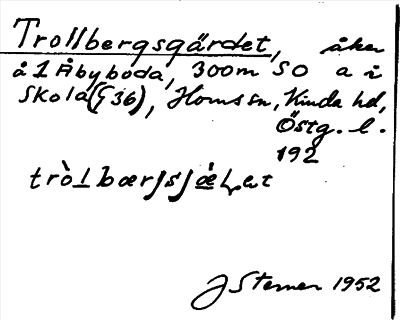 Trollbergsgärdet, åker
å 1 Åbyboda, 300m SO a i
Skola (§ 36), Horns sn, Kinda hd,
Östg. l.
192
J Sterner 1952